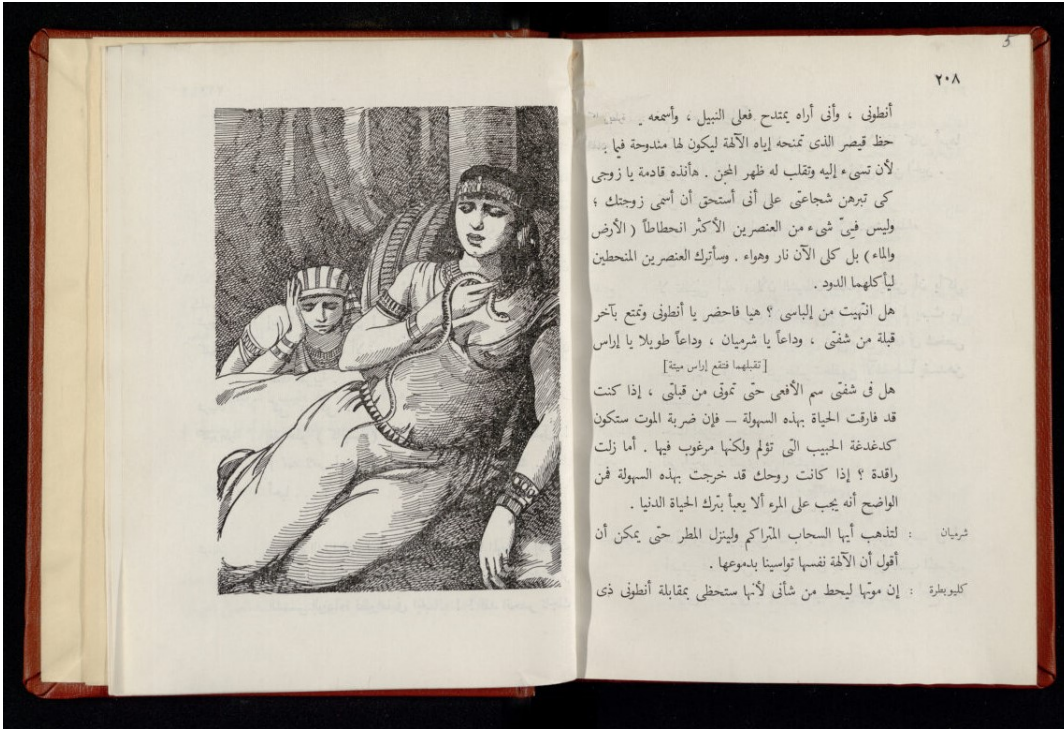 5
٢٠٨
أنطونى ، وأنى أراه يمتدح فعلى النبيل ، وأسمعه
حظ قيصر الذى تمنحه إياه الآلهة ليكون لها مندوحة فيما
لأن تسىء إليه وتقلب له ظهر المجن . هأنذه قادمة يا زوجى
كى تبرهن شجاعتى على أنى أستحق أن أسمى زوجتك ؛
وليس فىّ شىء من العنصرين الأكثر انحطاطاً ( الأرض
والماء ) بل كلى الآن نار وهواء . وسأترك العنصرين المنحطين
ليأكلهما الدود .
هل انتهيت من إلباسى ؟ هيا فاحضر يا أنطونى وتمتع بآخر
قبلة من شفتى ، وداعاً يا شرميان ، وداعاً طويلا يا إراس
[ تقبلهما فتقع إراس ميتة ]
هل فى شفتى سم الأفعى حتى تموتى من قبلتى ، إذا كنت
قد فارقت الحياة بهذه السهولة – فإن ضربة الموت ستكون
كدغدغة الحبيب التى تؤلم ولكنها مرغوب فيها . أما زلت
راقدة ؟ إذا كانت روحك قد خرجت بهذه السهولة فمن
الواضح أنه يجب على المرء ألا يعبأ بترك الحياة الدنيا .
شرميان : لتذهب أيها السحاب المتراكم ولينزل المطر حتى يمكن أن
أقول أن الآلهة نفسها تواسينا بدموعها .
كليوبطرة : إن موتها ليحط من شأنى لأنها ستحظى بمقابلة أنطونى ذى